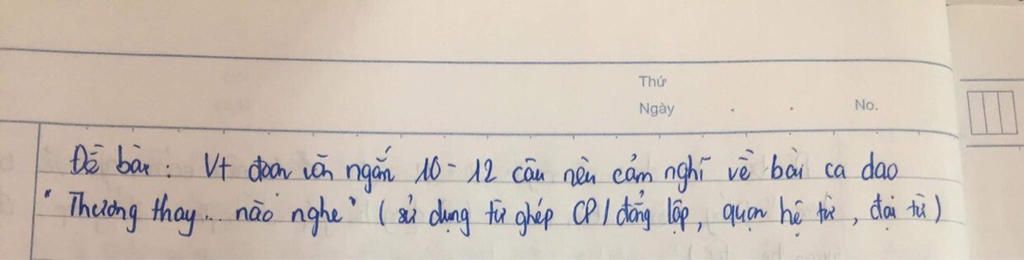 Thứ
Ngày . . No.
Đề bài : Vt đoạn văn ngắn 10 - 12 câu nêu cảm nghĩ về bài ca dao
"Thương thay... nào nghe" (sử dụng từ ghép CP / đẳng lập, quan hệ từ, đại từ)